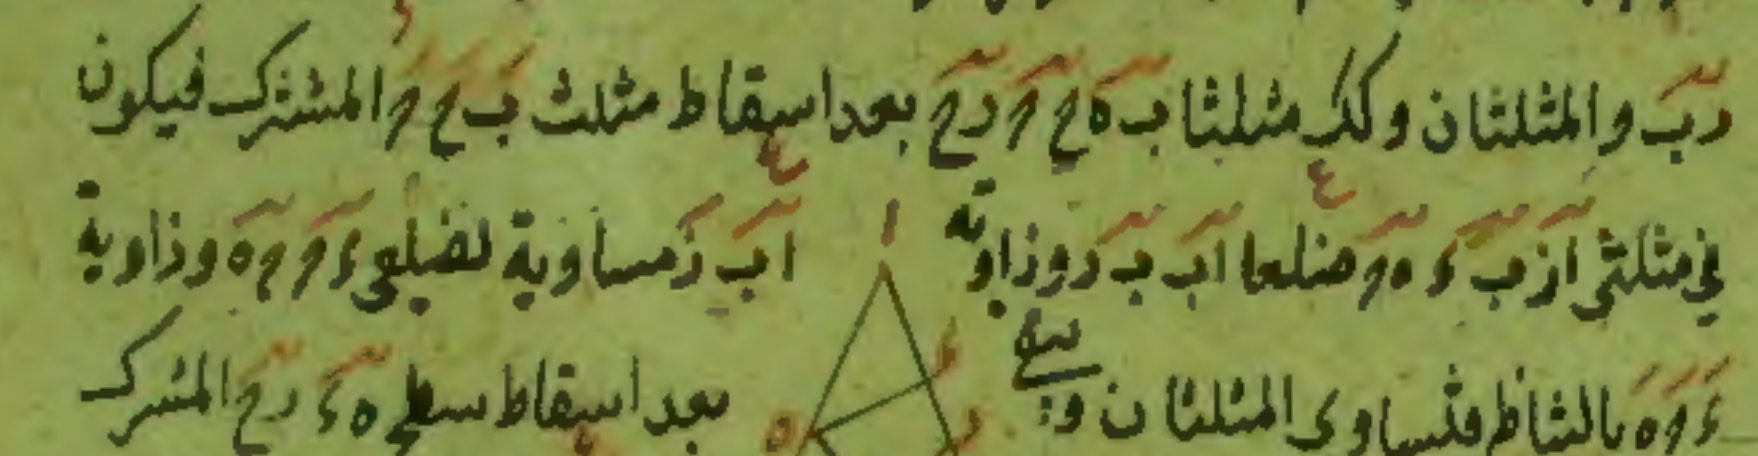 رب والمثلثان وكذلك مثلثا ب ه ح م ر ح بعد اسقاط مثلث ب ح م المشترك فيكون
في مثلثي ا ز ب ء ه م ضلعا ا ب ب ر وزاوية ا ب ز مساوية لضلعي ء م م ه وزاوية
ء م ه بالتناظر فتساوى المثلثان و بعد اسقاط سطح ه ء ر ح المشترك